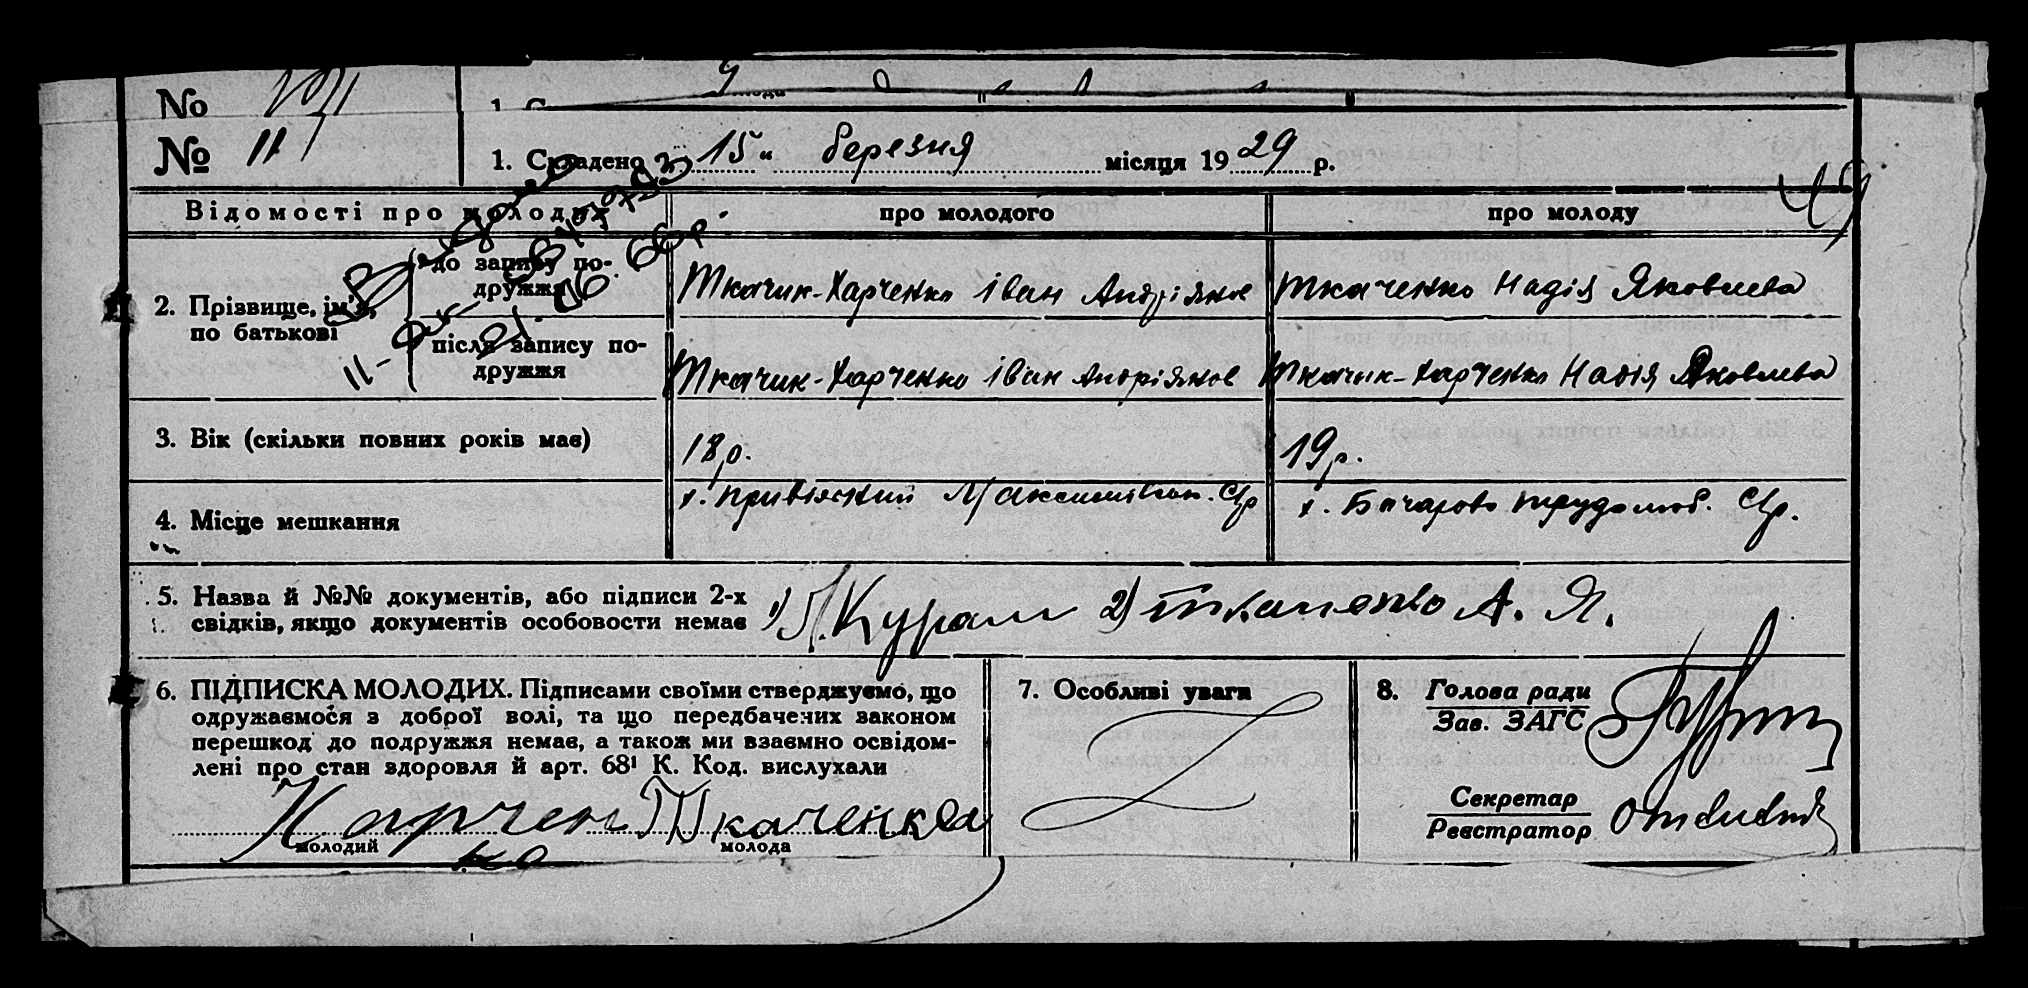 №
№ 11
1. Складено „15“ березня місяця 1929 р.
Відомості про молодих
про молодого
про молоду
2. Прізвище, ім'я, по батькові
до запису подружжя
Ткачик-Харченко Іван Андріянов
Ткаченко Надія Яковлева
після запису подружжя
Ткачик-Харченко Іван Андріянов
Ткачик-Харченко Надія Яковлева
3. Вік (скільки повних років має)
18 р.
19 р.
4. Місце мешкання
х. Привіский Максимівск. С/р
х. Бочарово Трудолюб. С/р.
5. Назва й №№ документів, або підписи 2-х
свідків, якщо документів особовости немає
1) Курам 2) Ткаченко А. Я.
6. ПІДПИСКА МОЛОДИХ. Підписами своїми стверджуємо, що
одружаємося з доброї волі, та що передбачених законом
перешкод до подружжя немає, а також ми взаємно освідом-
лені про стан здоровля й арт. 68¹ К. Код. вислухали
Харченко
Ткаченкова
молодий
молода
7. Особливі уваги
8. Голова ради
Зав. ЗАГС
Секретар
Реєстратор